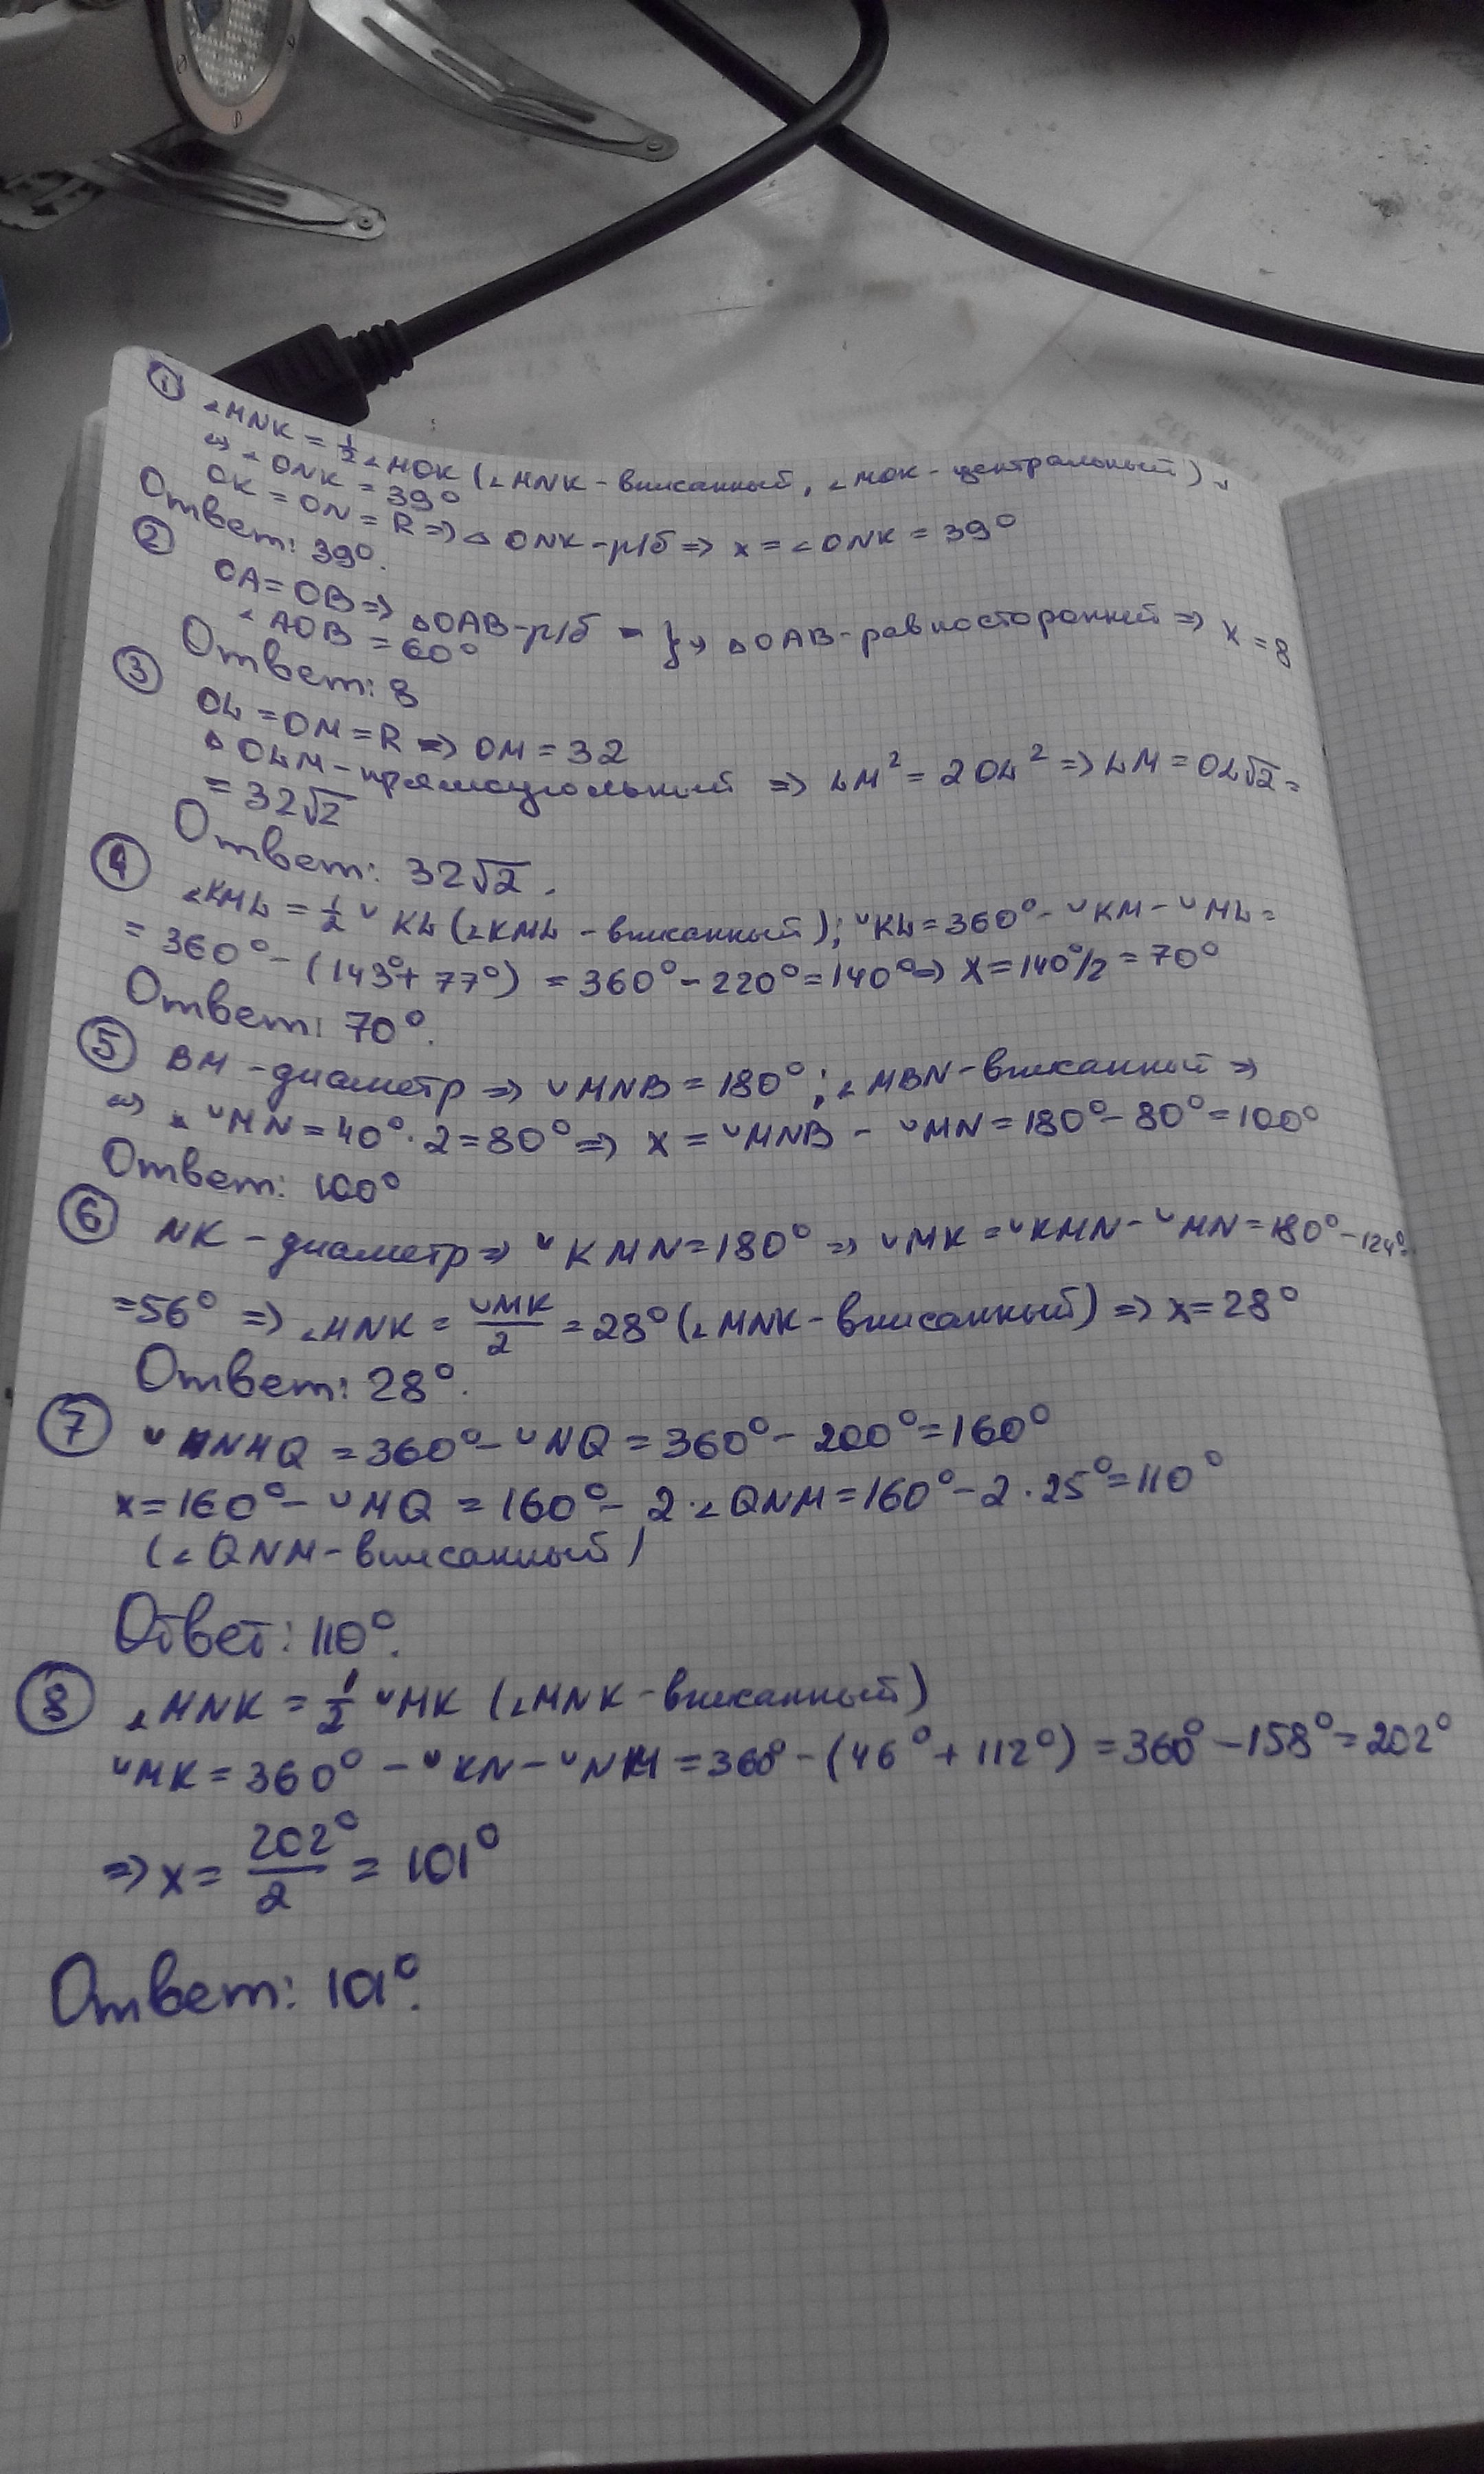 ① ∠MNK = 1/2 ∠MOK (∠MNK - вписанный, ∠MOK - центральный) ⇒
⇒ ∠ONK = 39°
OK = ON = R ⇒ △ONK - р/б ⇒ x = ∠ONK = 39°
Ответ: 39°.
②
OA = OB ⇒ △OAB - р/б
∠AOB = 60° } ⇒ △OAB - равносторонний ⇒ x = 8
Ответ: 8
③
OL = OM = R ⇒ OM = 32
△OLM - прямоугольный ⇒ LM² = 2OL² ⇒ LM = OL√2 =
= 32√2
Ответ: 32√2.
④
∠KML = 1/2 ◡KL (∠KML - вписанный); ◡KL = 360° - ◡KM - ◡ML =
= 360° - (143° + 77°) = 360° - 220° = 140° ⇒ x = 140°/2 = 70°
Ответ: 70°.
⑤ BM - диаметр ⇒ ◡MNB = 180°; ∠MBN - вписанный ⇒
⇒ ◡MN = 40° · 2 = 80° ⇒ x = ◡MNB - ◡MN = 180° - 80° = 100°
Ответ: 100°
⑥ NK - диаметр ⇒ ◡KMN = 180° ⇒ ◡MK = ◡KMN - ◡MN = 180° - 124° =
= 56° ⇒ ∠MNK = ◡MK/2 = 28° (∠MNK - вписанный) ⇒ x = 28°
Ответ: 28°.
⑦ ◡NMQ = 360° - ◡NQ = 360° - 200° = 160°
x = 160° - ◡MQ = 160° - 2 · ∠QNM = 160° - 2 · 25° = 110°
(∠QNM - вписанный)
Ответ: 110°.
⑧ ∠MNK = 1/2 ◡MK (∠MNK - вписанный)
◡MK = 360° - ◡KN - ◡NM = 360° - (46° + 112°) = 360° - 158° = 202°
⇒ x = 202°/2 = 101°
Ответ: 101°.